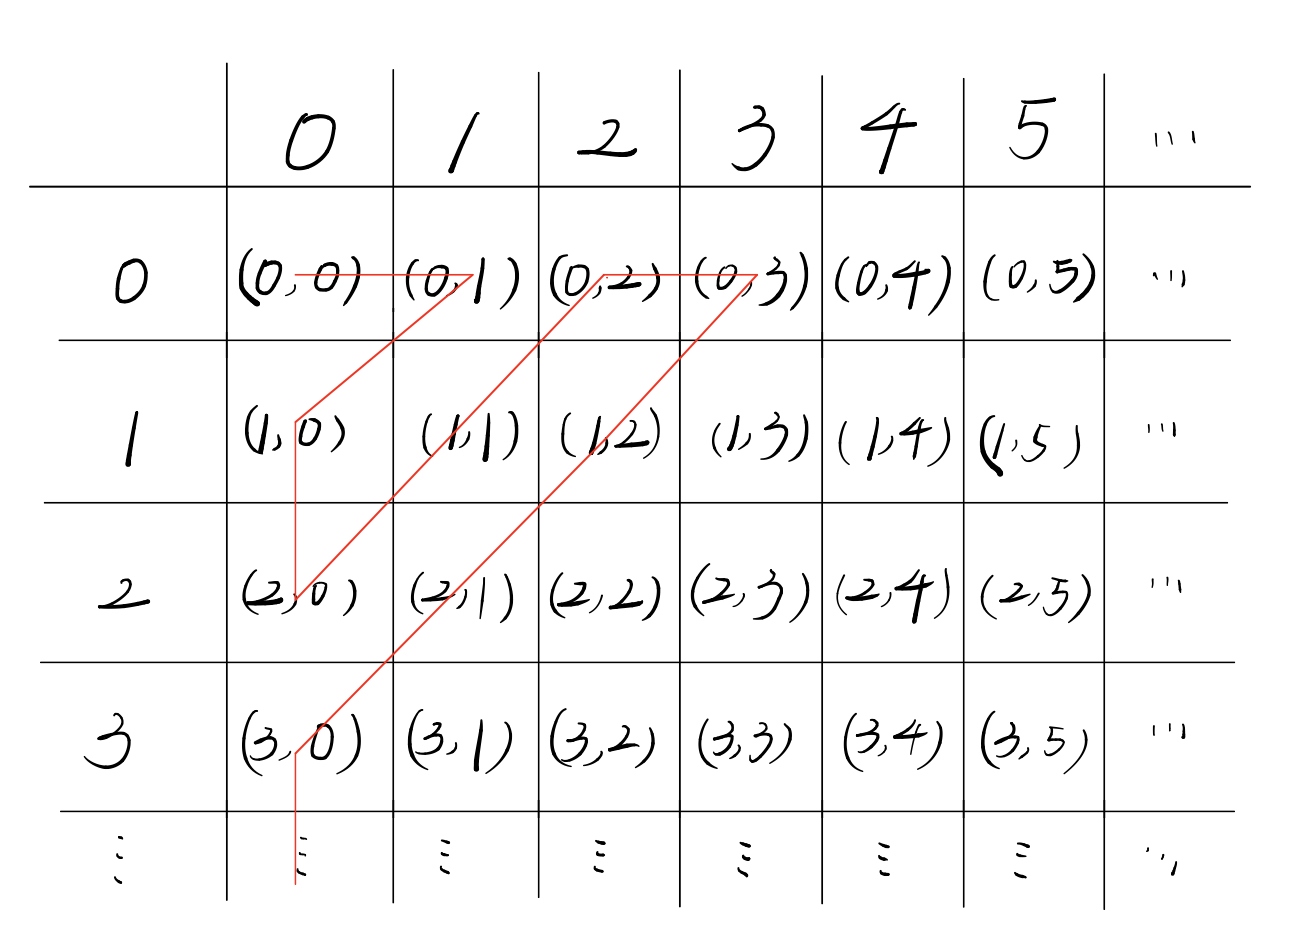 0 1 2 3 4 5 ...
0 (0,0) (0,1) (0,2) (0,3) (0,4) (0,5) ...
1 (1,0) (1,1) (1,2) (1,3) (1,4) (1,5) ...
2 (2,0) (2,1) (2,2) (2,3) (2,4) (2,5) ...
3 (3,0) (3,1) (3,2) (3,3) (3,4) (3,5) ...
⋮ ⋮ ⋮ ⋮ ⋮ ⋮ ⋮ ⋱